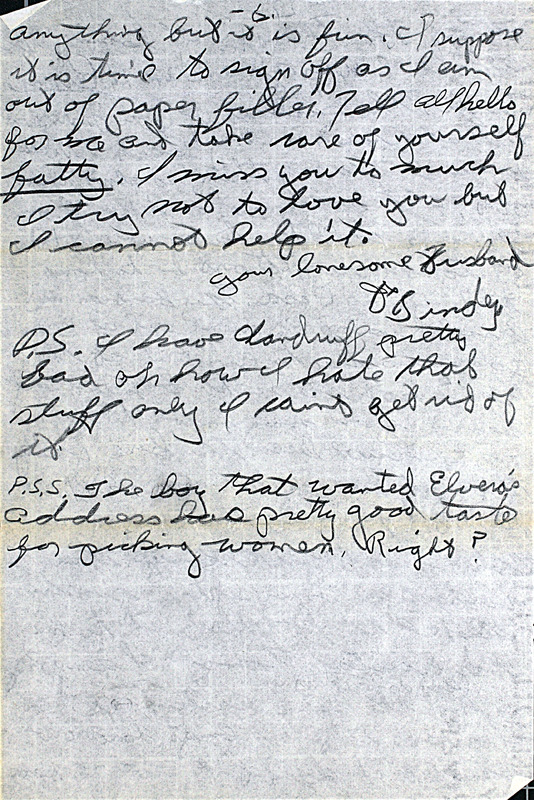 -6.
anything but it is fun. I suppose
it is time to sign off as I am
out of paper fider. Tell all hello
for me and take care of yourself
fatty. I miss you to much
I try not to love you but
I cannot help it.
your lonesome Husband
Bindy
P.S. I have dandruff pretty
bad oh how I hate that
stuff only I cain't get rid of
it
P.S.S. The boy that wanted Elvera's
address has pretty good taste
for picking women. Right?